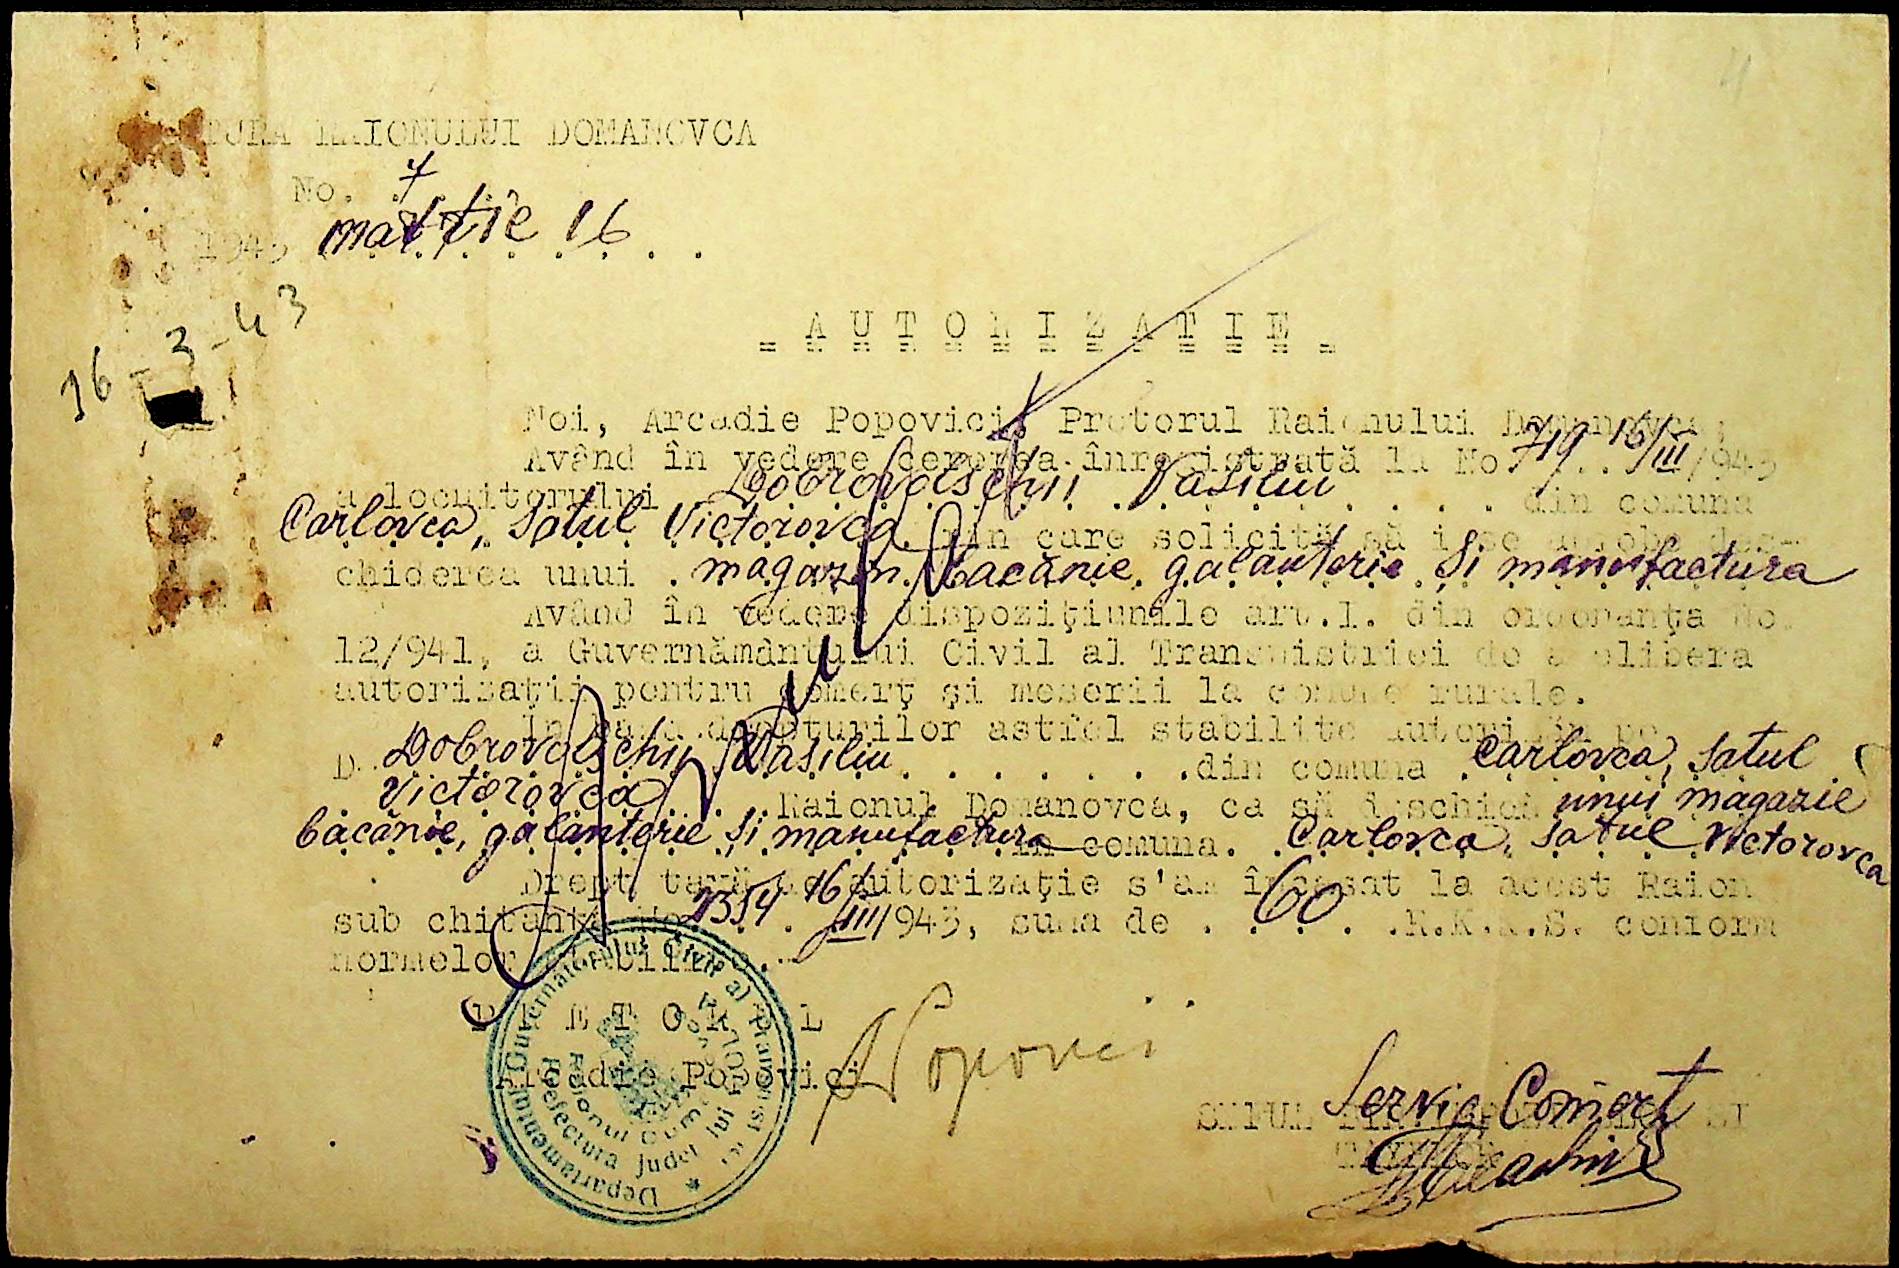 TURA RAIONULUI DOMANOVCA
No. 7
1943 martie 16
16-3-43
AUTORIZATIE
Noi, Arcadie Popovici, Pretorul Raionului Domanovca,
Având în vedere cererea înregistrată la No 719 . . 16/III/1943
a locuitorului Dobrovolschii Vasiliu . . . . din comuna
Carlovca, satul Victorovca, prin care solicită să i se aprobe des-
chiderea unui magazin bacănie, galanterie și manufactura
Având în vedere dispozițiunile art.1. din ordonanța No.
12/941, a Guvernământului Civil al Transnistriei de a elibera
autorizații pentru comerț și meserii la comune rurale.
In baza drepturilor astfel stabilite autorizăm pe
D. Dobrovolschii Vasiliu . . . . . . din comuna Carlovca, satul
Victorovca . . . Raionul Domanovca, ca să deschidă unui magazie
bacănie, galanterie și manufactura in comuna. Carlovca, satul Victorovca
Drept taxă de autorizație s'au încasat la acest Raion
sub chitanța No 16/III/1943, suma de . 60 . .R.K.K.S. conform
normelor stabilite.-
PRETORUL
Arcadie Popovici
A Popovici
Servic Comerț
Departamentar Guvernatorului Civil al Transnistriei
Prefectura Judet lui GOLTA
Raionul Dumanovca